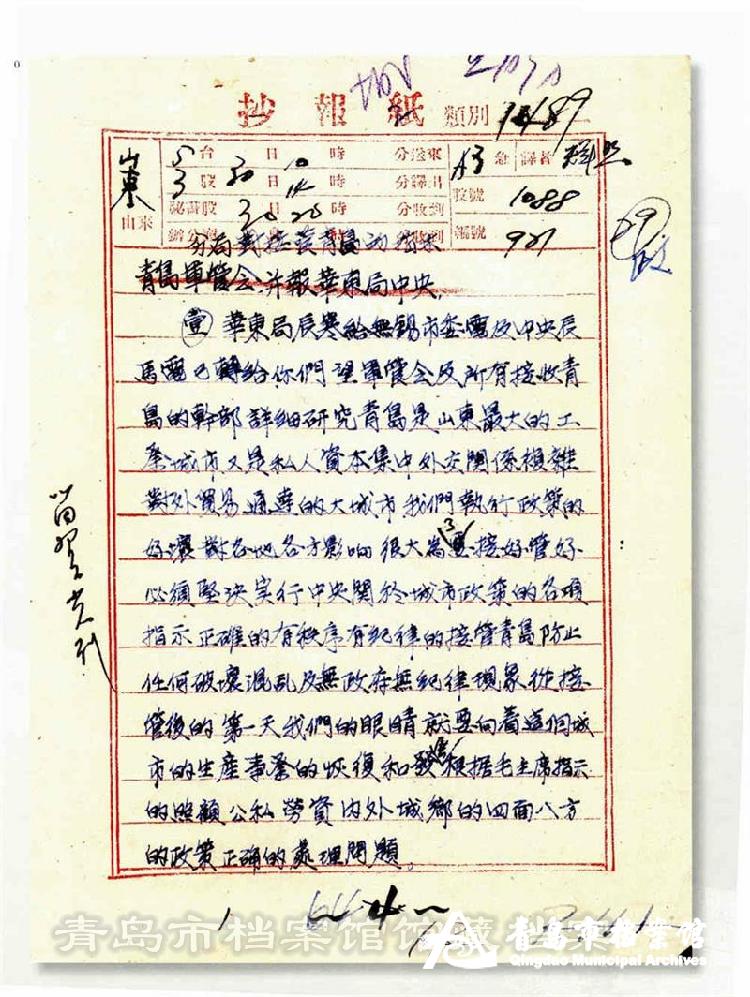 抄報紙 類別 1489
山東
5 台 30 日 10 時 分送來
3 股 30 日 14 時 分譯出
秘書股 30 20 時 分收到
辦公室
A3 急 譯者
收號 1088
編號 921
山東
分局對接管青島的指示
青島軍管会并報華東局中央
壹 華東局辰寒給無錫市委電及中央辰
馬電已轉給你們望軍管会及所有接收青
島的幹部詳細研究青島是山東最大的工
業城市又是私人資本集中外交關係複雜
對外貿易通達的大城市我們執行政策的
好壞對各地各方影响很大為了要接好管好
必須堅決実行中央關於城市政策的各項
指示正確的有秩序有紀律的接管青島防止
任何破壞混乱及無政府無紀律現象從接
管後的第一天我們的眼睛就要向着這個城
市的生產事業的恢復和發展根据毛主席指示
的照顧公私勞資内外城鄉的四面八方
的政策正確的處理問題。
1
青岛市档案馆馆藏
青岛市档案馆
Qingdao Municipal Archives